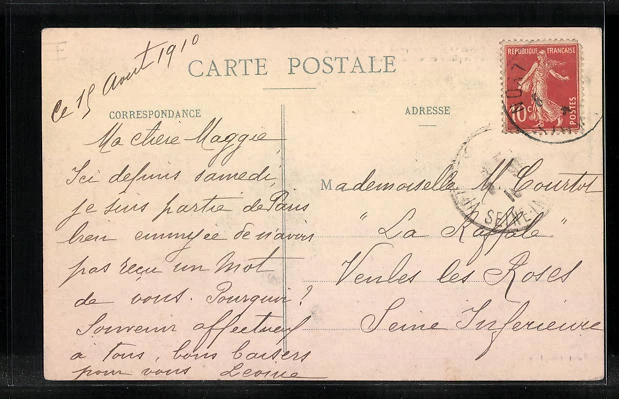 Ce 15 Août 1910
CARTE POSTALE
CORRESPONDANCE
ADRESSE
REPUBLIQUE FRANÇAISE
10c
POSTES
Ma chère Maggie
Ici depuis samedi
je suis partie de Paris
bien ennuyée de n'avoir
pas reçu un mot
de vous. Pourquoi ?
Souvenir affectueux
à tous, bons baisers
pour vous Léonie
Mademoiselle M Courtot
"La Raffale"
Veules les Roses
Seine Inferieure
SEINE